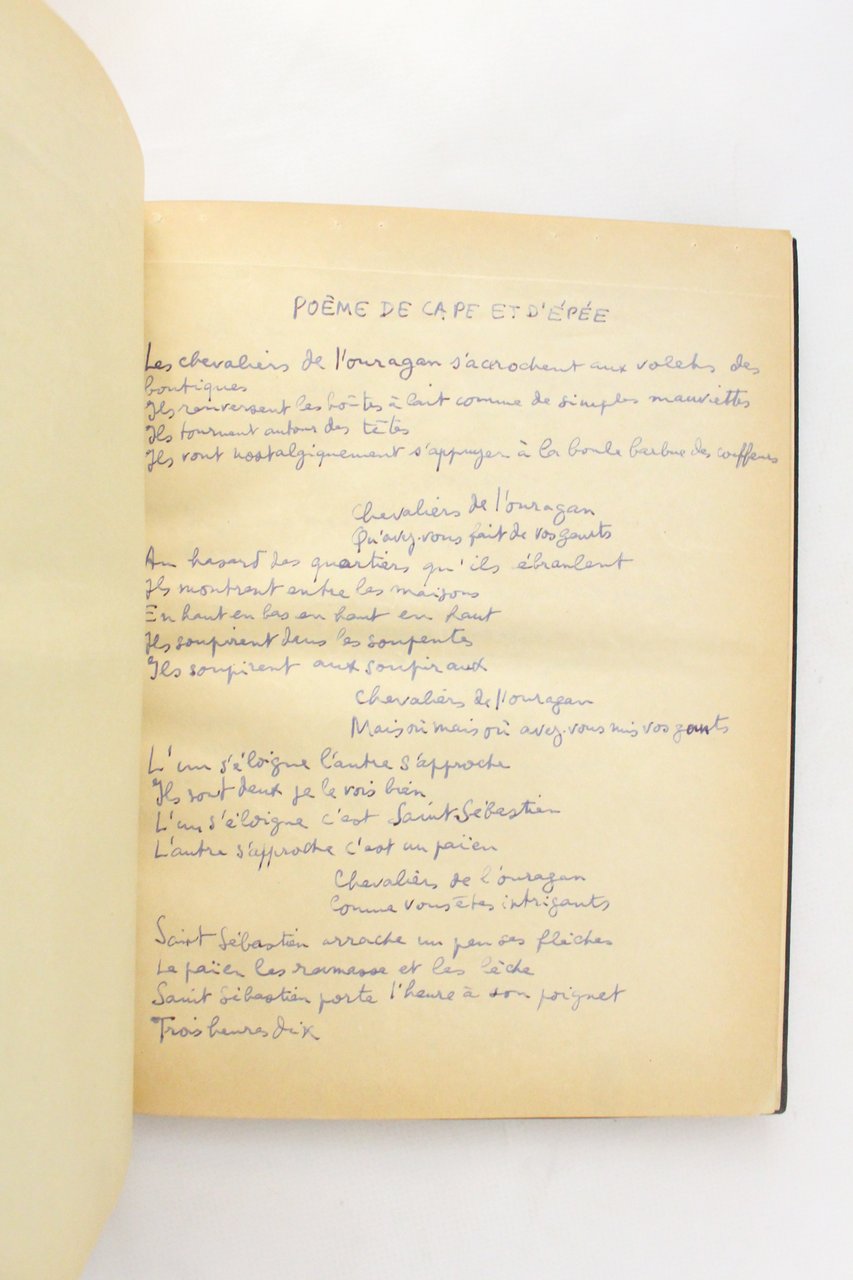 POÈME DE CAPE ET D'ÉPÉE
Les chevaliers de l'ouragan s'accrochent aux volets des
boutiques
Ils renversent les boîtes à lait comme de simples mauviettes
Ils tournent autour des têtes
Ils vont nostalgiquement s'appuyer à la boule barbue des coiffeurs
Chevaliers de l'ouragan
Qu'avez-vous fait de vos gants
Au hasard des quartiers qu'ils ébranlent
Ils montrent entre les maisons
En haut en bas en haut en haut
Ils soupirent dans les soupentes
Ils soupirent aux soupiraux
Chevaliers de l'ouragan
Mais où mais où avez-vous mis vos gants
L'un s'éloigne l'autre s'approche
Ils sont deux je le vois bien
L'un s'éloigne c'est Saint Sébastien
L'autre s'approche c'est un païen
Chevaliers de l'ouragan
Comme vous êtes intrigants
Saint Sébastien arrache un peu ses flèches
Le païen les ramasse et les lèche
Saint Sébastien porte l'heure à son poignet
Trois heures dix